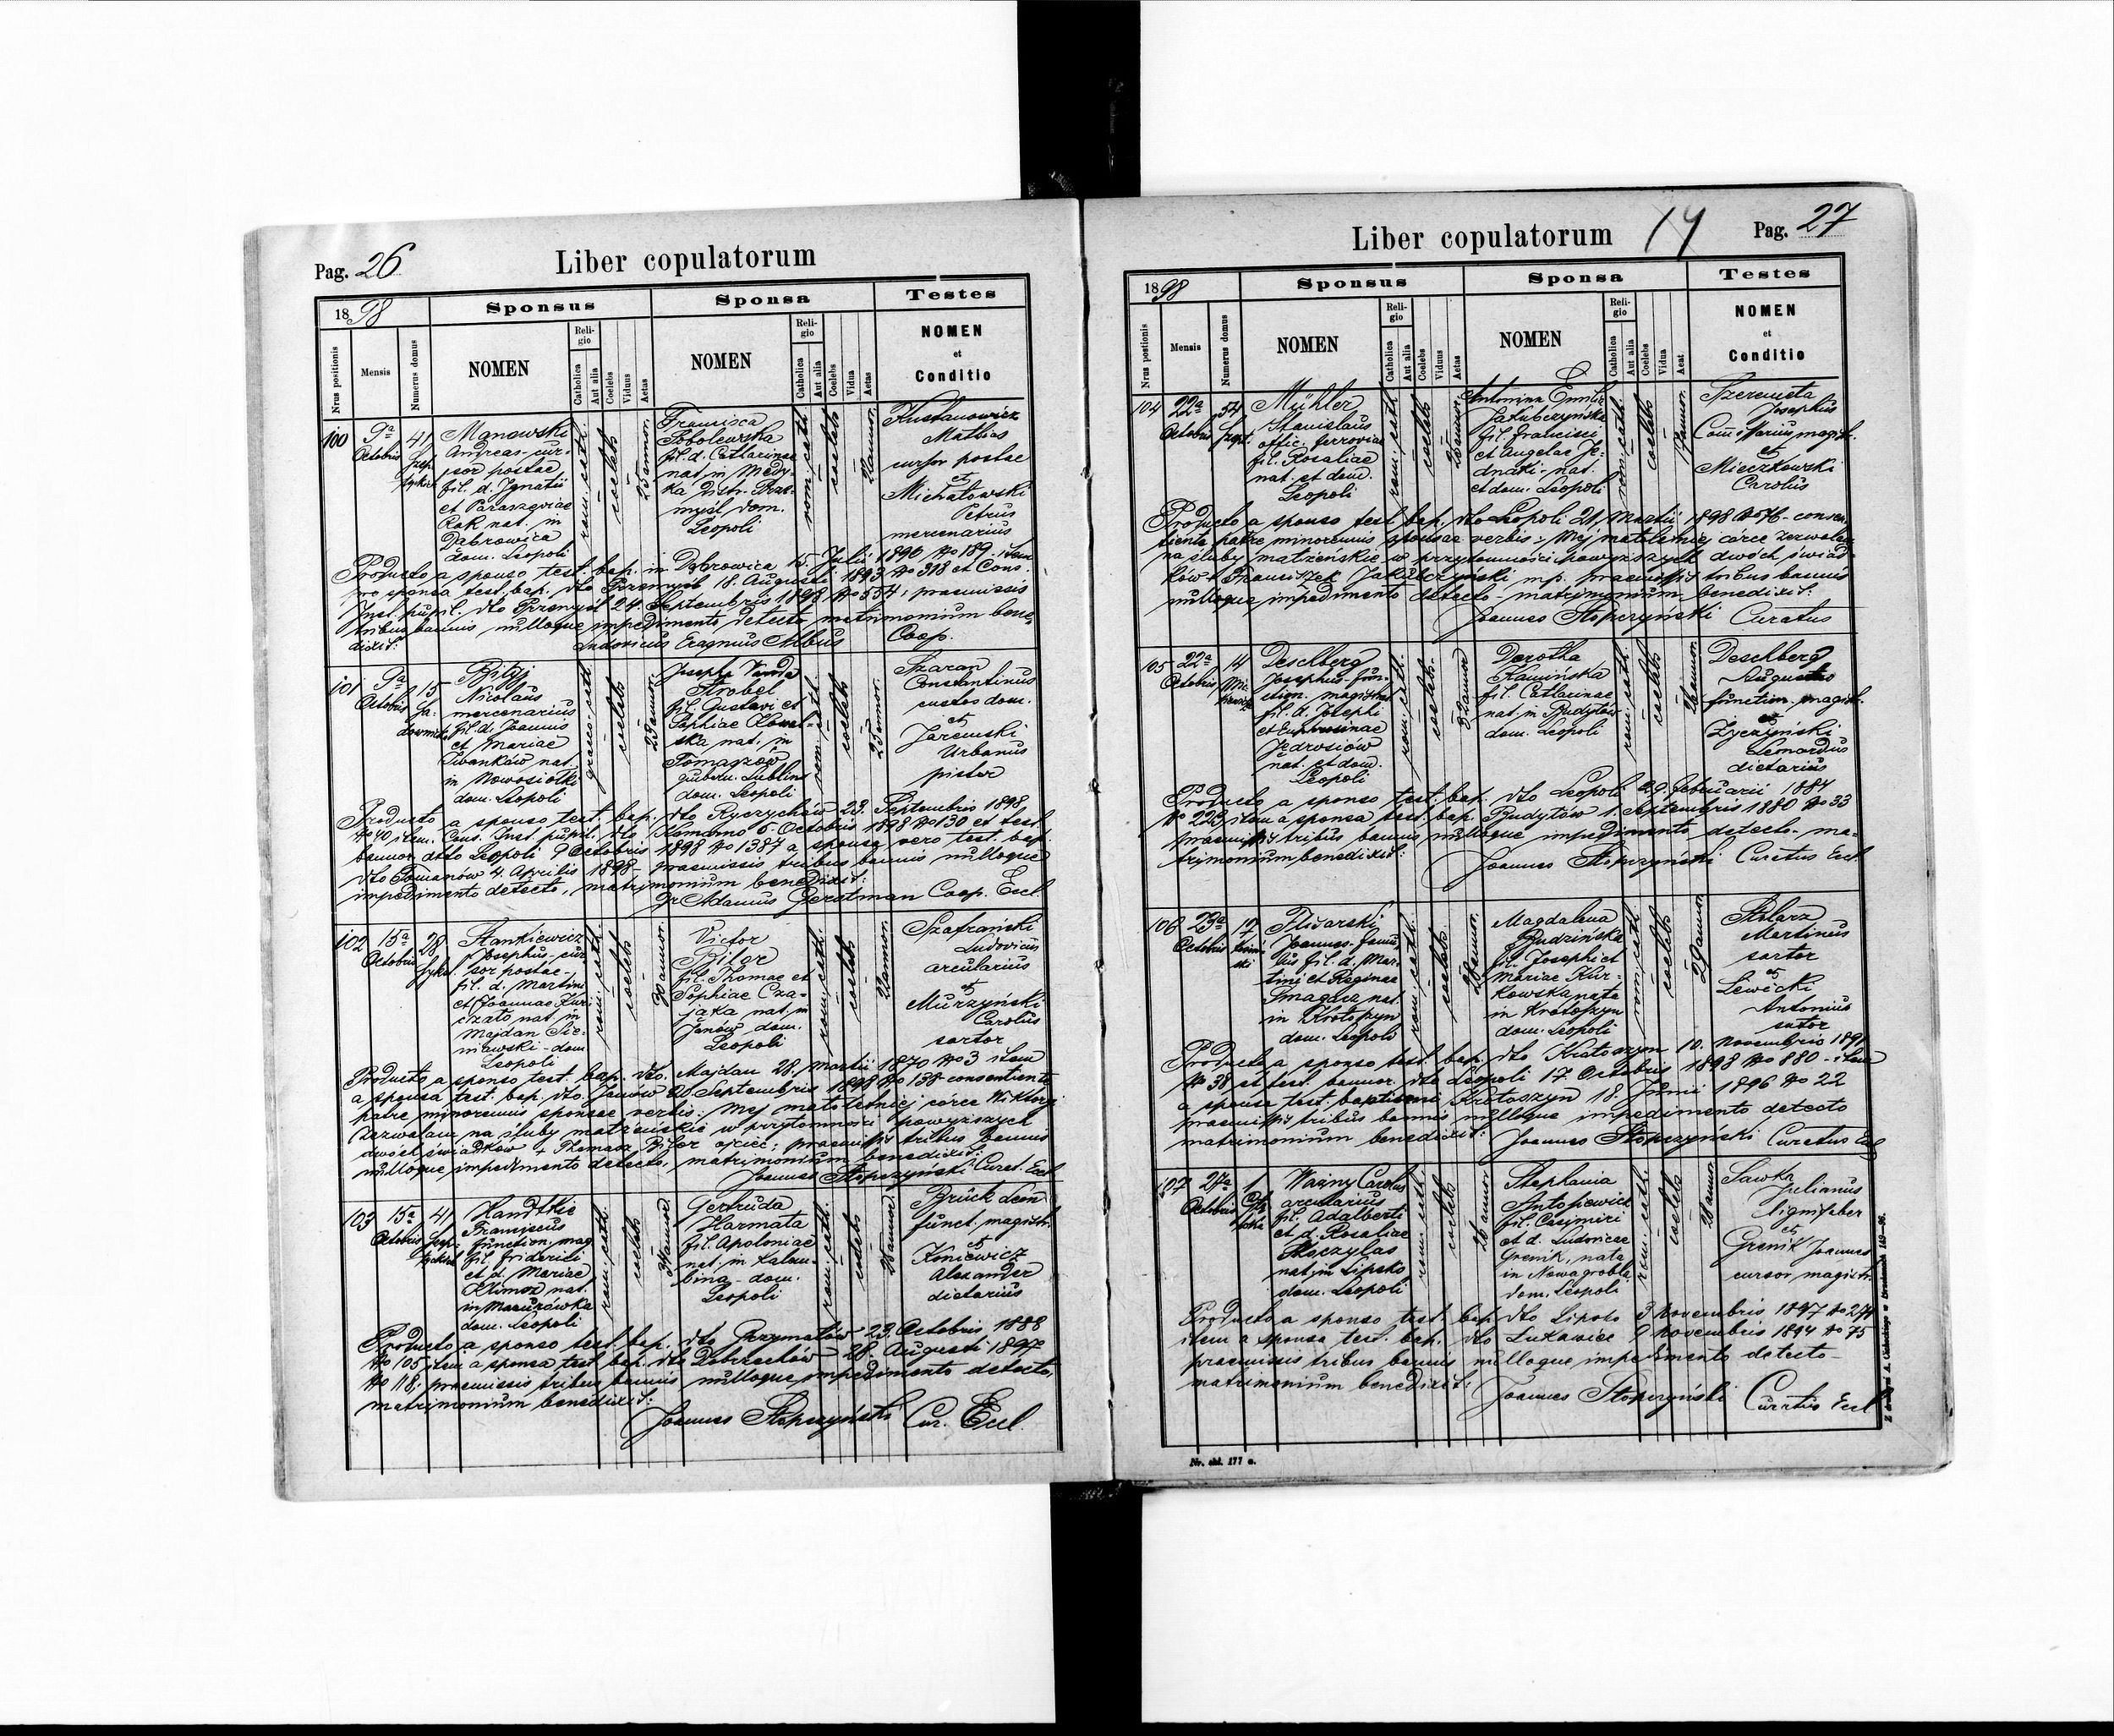 Pag. 26
Liber copulatorum
1898
Sponsus
Sponsa
Testes
Nrus positionis
Mensis
Numerus domus
NOMEN
Religio
Catholica
Aut alia
Coelebs
Viduus
Aetas
NOMEN
Religio
Catholica
Aut alia
Coelebs
Vidua
Aetas
NOMEN
et
Conditio
100
9a
Octobris
41
Manowski
Andreas - cur-
sor postae
fil. d. Ignatii
et Paraszeviae
Rak nat. in
Dąbrowica
dom. Leopoli
rom. cath.
coelebs
25 annor.
Francisca
Sobolewska
fil. d. Catharinae
nat. in Medy-
ka distr. Prze-
myśl dom.
Leopoli
rom. cath.
coelebs
Mathias
cursor postae
et
Michałowski
Petrus
mercenarius
Producto a sponso test. bap. in Dąbrowica 15. Julii 1896 No 189 - item
pro sponsa test. bap. dto Przemyśl 18. Augusti 1893 No 318 et Cons.
Inst. pupil. dto Przemyśl 24. Septembris 1898 No 554; praemissis
tribus bannis nulloque impedimento detecto matrimonium bene-
dixit:
Ludovicus Erasmus Albus Coop.
101
9a
Octobris
15
Nicolaus
mercenarius
fil. d. Joannis
et Mariae
Iwanków nat.
in Nowosiołki
dom. Leopoli
graeco cath.
coelebs
Josepha Vanda
Strobel
fil. Gustavi et
Sophiae Kowal-
ska nat. in
Tomaszów
gubern. Lublin
dom. Leopoli
rom. cath.
coelebs
Szaran
Constantinus
custos dom.
et
Jaremski
Urbanus
pistor
Producto a sponso test. bap. dto Ryczychów 23. Septembris 1898
No 40 item Cons. Inst. pupil. dto Komarno 5. Octobris 1898 No 130 et test.
bannor. dto Leopoli 9 Octobris 1898 No 1387 a sponsa vero test. bap.
dto Tomaszów 4. Aprilis 1898 - praemissis tribus bannis nulloque
impedimento detecto, matrimonium benedixit:
Gerstman Coop. Eccl.
102
15a
Octobris
28
Stankiewicz
Josephus - cur-
sor postae -
fil. d. Martini
et Joannae
nat. in
Majdan Sie-
niawski - dom.
Leopoli
rom. cath.
coelebs
30 annor.
Victor
Bilor
fil. Thomae et
Sophiae Cza-
jka nat. in
Janów dom.
Leopoli
rom. cath.
coelebs
Szafrański
Ludovicus
arcularius
et
Murzyński
Carolus
sartor
Producto a sponso test. bap. dto. Majdan 28. Martii 1870 No 3 item
a sponsa test. bap. dto. Janów 20 Septembris 1898 No 138 consentiente
patre minorennis sponsae verbis: Mej małoletniej córce Wiktoryi
zezwalam na śluby małżeńskie w przytomności powyższych
dwóch świadków + Thomasz Bilor ojciec; praemissis tribus bannis
nulloque impedimento detecto, matrimonium benedixit:
Joannes Stopczyński Curat. Eccl
103
15a
Octobris
41
Handtkie
Franciscus
function. mag.
fil. Friderici
et d. Mariae
Klimosz nat.
in Mazurówka
dom. Leopoli
rom. cath.
coelebs
Gertruda
Harmata
fil. Apoloniae
nat. in Kalem-
bina - dom.
Leopoli
rom. cath.
coelebs
Brück Leon
funct. magistr.
et
Koniewicz
Alexander
dietarius
Producto a sponso test. bap. dto Grzymałów 23. Octobris 1888
No 105 item a sponsa test. bap. dto Dobrzechów 28. Augusti 1897
No 118; praemissis tribus bannis nulloque impedimento detecto,
matrimonium benedixit:
Joannes Stopczyński Cur. Eccl.
Liber copulatorum
14
Pag. 27
1898
Sponsus
Sponsa
Testes
Nrus postionis
Mensis
Numerus domus
NOMEN
Religio
Catholica
Aut alia
Coelebs
Viduus
Aetas
NOMEN
Religio
Catholica
Aut alia
Coelebs
Vidua
Aeat
NOMEN
et
Conditio
104
22a
Octobris
54
Mühler
Stanislaus
offic. ferroviae
fil. Rosaliae
nat. et dom.
Leopoli
rom. cath.
coelebs
Antonina Emilia
Jakubczyńska
fil. Francisci
et Angelae Je-
dnaki - nat.
et dom. Leopoli
rom. cath.
coelebs
Szeremeta
Josephus
Comissarius magistr.
et
Mieczkowski
Carolus
Producto a sponso test. bap. dto Leopoli 21. Martii 1898 No 76 - consen-
tiente patre minorennis sponsae verbis: Mej małoletniej córce zezwalam
na śluby małżeńskie w przytomności powyższych dwóch świad-
ków + Franciszek Jakubczyński mp. praemissis tribus bannis
nulloque impedimento detecto - matrimonium benedixit:
Joannes Stopczyński Curatus
105
22a
Octobris
14
Deschberg
Josephus fun-
ction. magistrat.
fil. d. Josephi
et Euphrosinae
Jedrosiów
nat. et dom.
Leopoli
rom. cath.
coelebs
32 annor
Dorotha
Kamińska
fil. Catharinae
nat. in Budytów
dom. Leopoli
rom. cath.
coelebs
Deschberg
Augustus
function. magistr.
et
Życzyński
Leonardus
dietarius
Producto a sponso test. bap. dto Leopoli 29. Februarii 1884
No 223, item a sponsa test. bap. Budytów 1. Septembris 1880 No 33
praemissis tribus bannis, nulloque impedimento detecto - ma-
trimonium benedixit:
Joannes Stopczyński Curatus Eccl
106
23a
Octobris
Śliwarski
Joannes - famu-
lus fil. d. Mar-
tini et Reginae
nat.
in Krotoszyn
dom. Leopoli
rom. cath.
coelebs
Magdalena
Budzińska
fil. Josephi et
Mariae Kur-
kowska nata
in Krotoszyn
dom. Leopoli
rom. cath.
coelebs
Stolarz
Martinus
sartor
et
Lewicki
Antonius
sutor
Producto a sponso test. bap. dto Krotoszyn 10. Novembris 1891
No 38 et test. bannor. dto Leopoli 17. Octobris 1898 No 880 - item
a sponsa test. baptismi Krotoszyn 18. Junii 1896 No 22
praemissis tribus bannis nulloque impedimento detecto
matrimonium benedixit:
Joannes Stopczyński Curatus Eccl
107
27a
Octobris
1
Ważny Carolus
arcularius
fil. Adalberti
et d. Rosaliae
Skoczylas
nat. in Lipsko
dom. Leopoli
rom. cath.
coelebs
Stephania
Antosiewicz
fil. Casimiri
et d. Ludovicae
Grenik, nata
in Nowagrobla
dom. Leopoli
rom. cath.
coelebs
Sawka
Julianus
lignifaber
et
Grenik Joannes
cursor magistr.
Producto a sponso test. bap. dto Lipsko 3 Novembris 1897 No 274
item a sponsa test. bap. dto Łukawiec 9 Novembris 1894 No 75
praemissis tribus bannis nulloque impedimento detecto -
matrimonium benedixit:
Joannes Stopczyński Curatus Eccl
Nr. skl. 177 a.